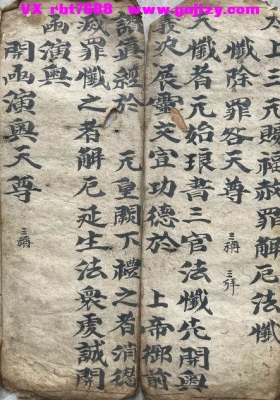 VX rbt7688 www.gujtzy.com
太上三元賜福赦罪解厄法懺
懺除罪咎天尊 三稱 三拜
夫懺者元始琅書三官法懺先開奧
義次展靈文宣功德於 上帝御前
誦真經於 元皇闕下禮之者消愆
滅罪懺之者解厄延生法衆虔誠開
函演奧
開函演奧天尊 三稱